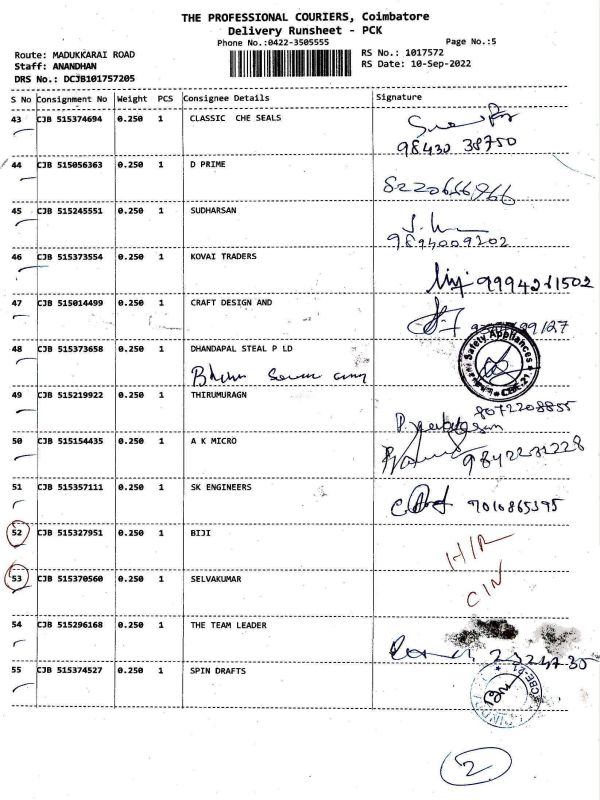 THE PROFESSIONAL COURIERS, Coimbatore
Delivery Runsheet - PCK
Phone No.:0422-3505555 Page No.:5
Route: MADUKKARAI ROAD RS No.: 1017572
Staff: ANANDHAN RS Date: 10-Sep-2022
DRS No.: DCJB101757205
S No Consignment No Weight PCS Consignee Details Signature
43 CJB 515374694 0.250 1 CLASSIC CHE SEALS
98430 38750
44 CJB 515056363 0.250 1 D PRIME
8220666966
45 CJB 515245551 0.250 1 SUDHARSAN
9894009202
46 CJB 515373554 0.250 1 KOVAI TRADERS
9994211502
47 CJB 515014499 0.250 1 CRAFT DESIGN AND
48 CJB 515373658 0.250 1 DHANDAPAL STEAL P LD
Safety Appliances
CBE-21
49 CJB 515219922 0.250 1 THIRUMURAGN
8072208855
50 CJB 515154435 0.250 1 A K MICRO
9842231228
51 CJB 515357111 0.250 1 SK ENGINEERS
7010865395
52 CJB 515327951 0.250 1 BIJI
H/R
53 CJB 515370560 0.250 1 SELVAKUMAR
C/N
54 CJB 515296168 0.250 1 THE TEAM LEADER
55 CJB 515374527 0.250 1 SPIN DRAFTS
CBE-21
2